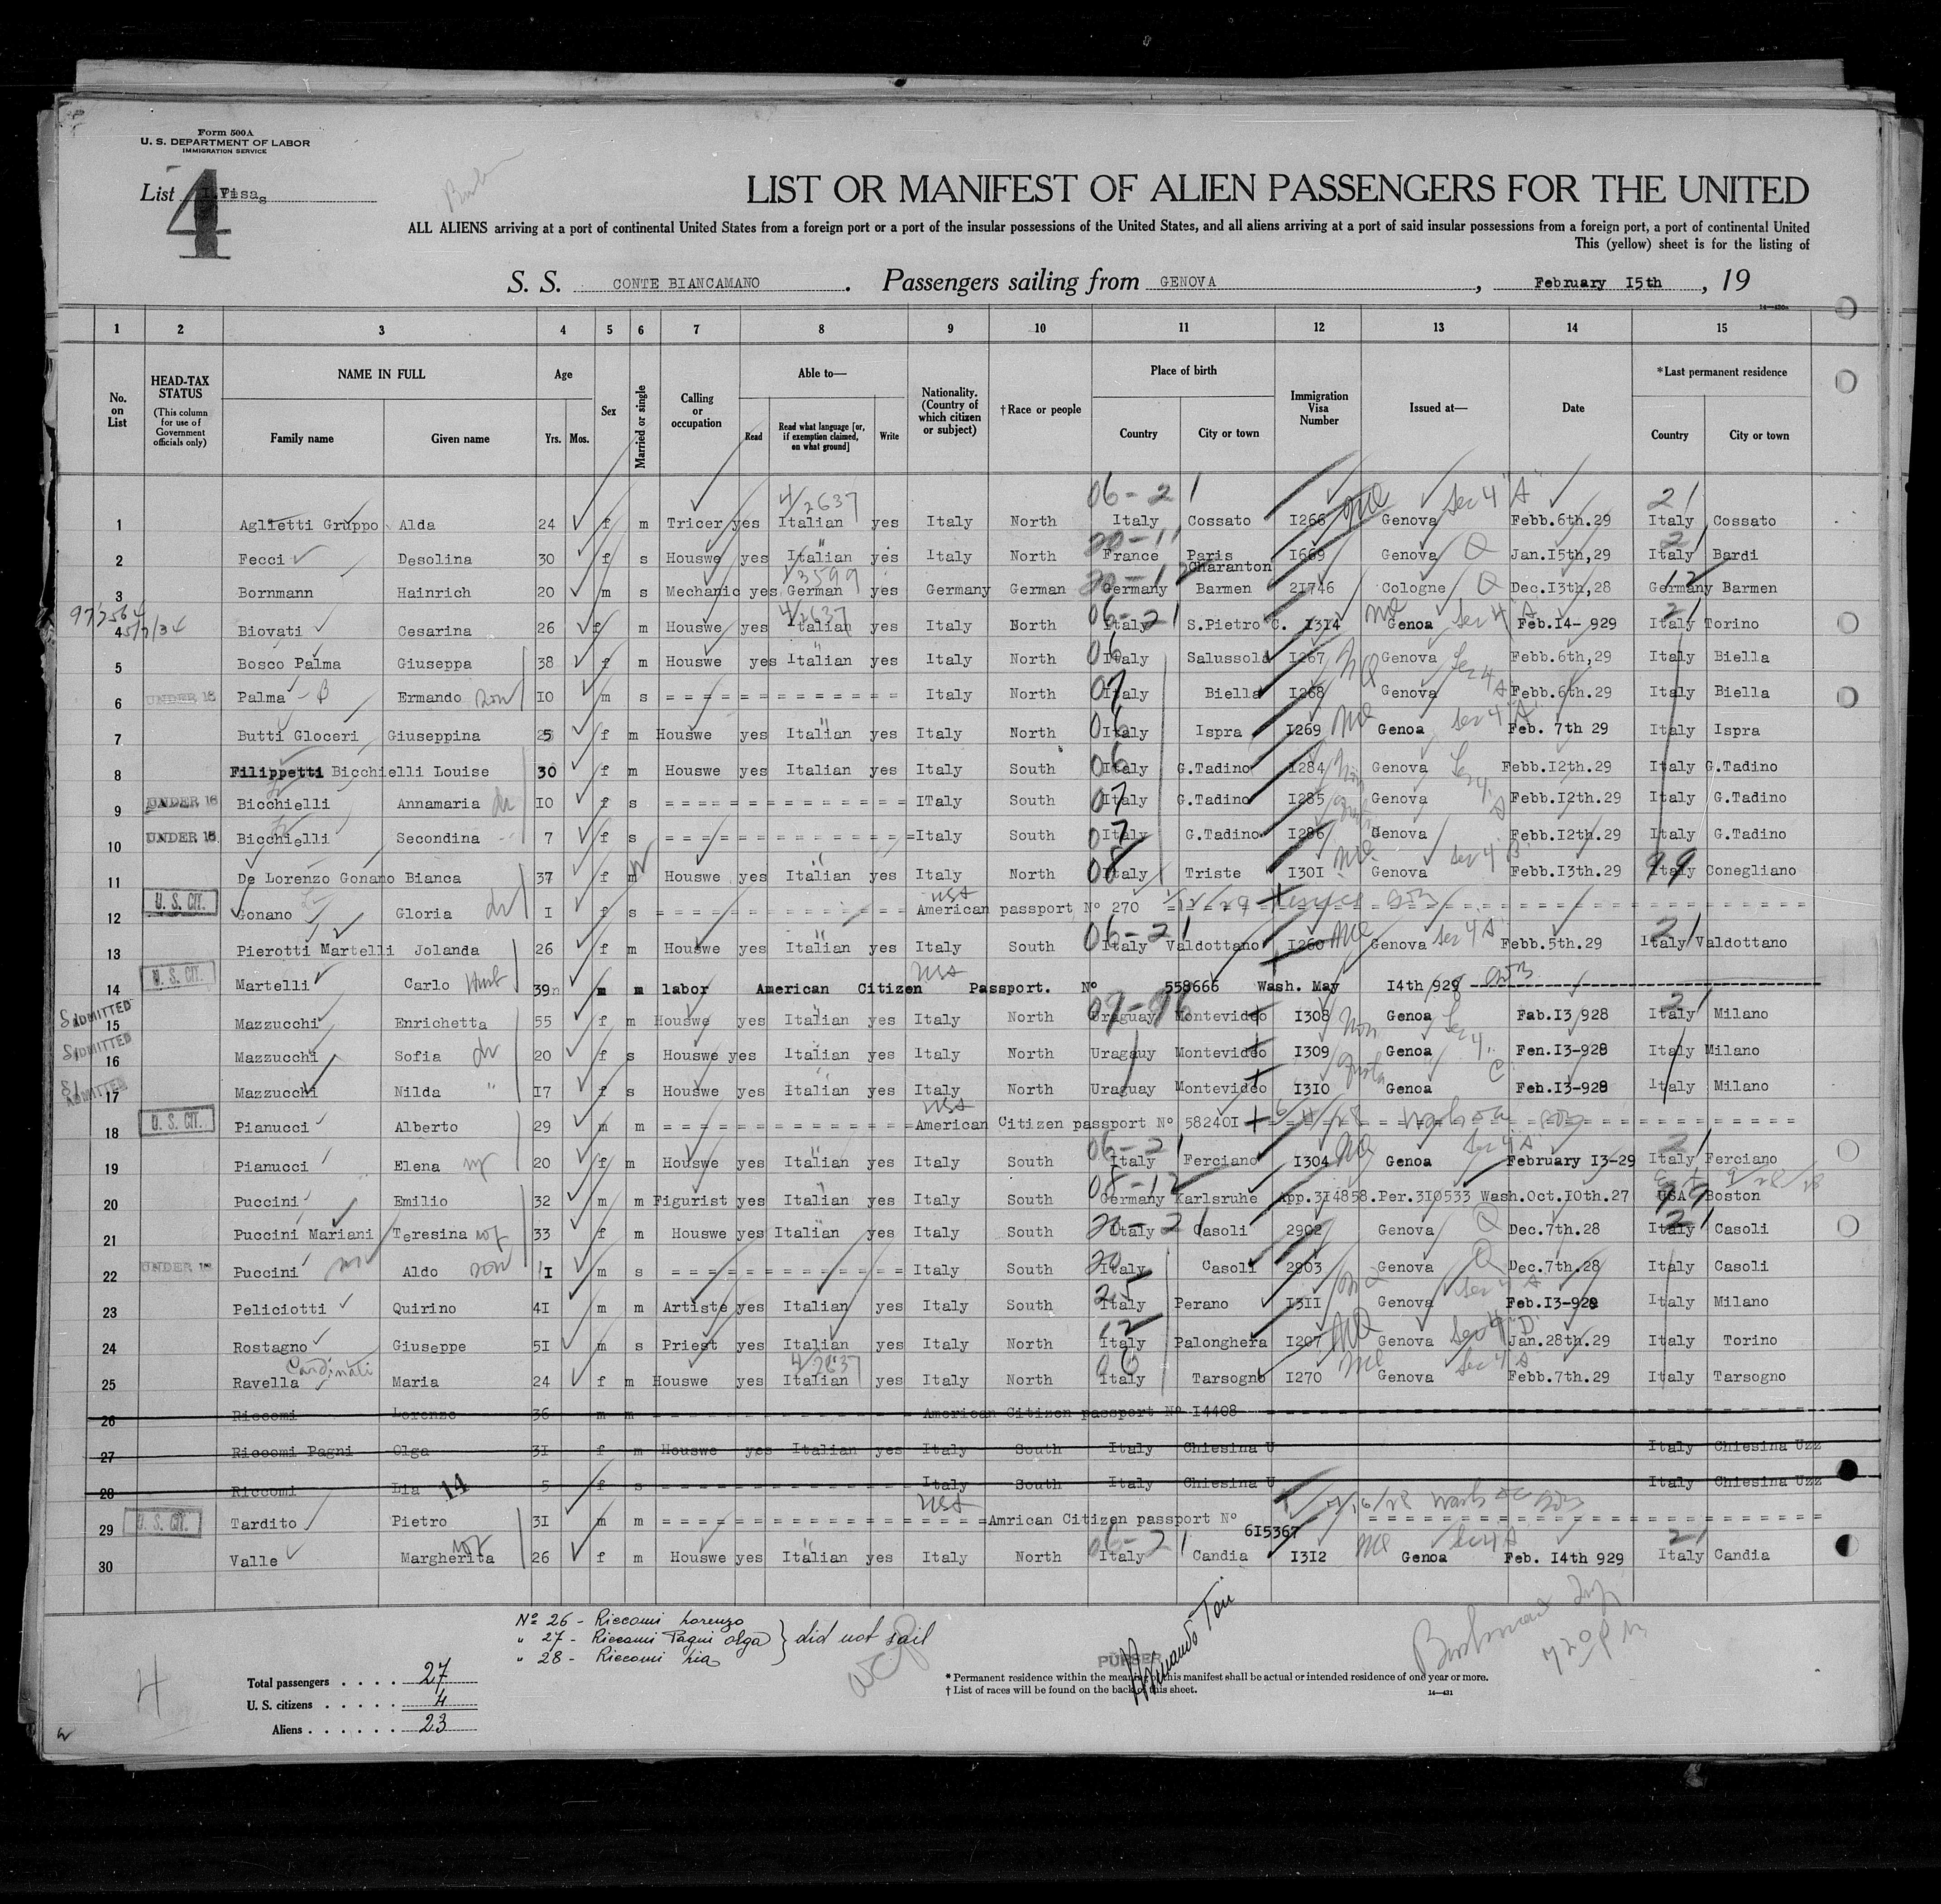 Form 500A
U. S. DEPARTMENT OF LABOR
IMMIGRATION SERVICE
List 4
LIST OR MANIFEST OF ALIEN PASSENGERS FOR THE UNITED
ALL ALIENS arriving at a port of continental United States from a foreign port or a port of the insular possessions of the United States, and all aliens arriving at a port of said insular possessions from a foreign port, a port of continental United
This (yellow) sheet is for the listing of
S. S. CONTE BIANCAMANO. Passengers sailing from GENOVA, February 15th, 19
14-430a
1 2 3 4 5 6 7 8 9 10 11 12 13 14 15
No. on List
HEAD-TAX STATUS (This column for use of Government officials only)
NAME IN FULL Family name Given name
Age Yrs. Mos.
Sex
Married or single
Calling or occupation
Able to— Read Read what language [or, if exemption claimed, on what ground] Write
Nationality. (Country of which citizen or subject)
†Race or people
Place of birth Country City or town
Immigration Visa Number
Issued at—
Date
*Last permanent residence Country City or town
06-21 4/2637 Sec 4 "A" 21
1 Aglietti Gruppo Alda 24 f m Tricer yes Italian yes Italy North Italy Cossato I266 Genova Febb.6th.29 Italy Cossato
2 Fecci Desolina 30 f s Houswe yes Italian yes Italy North France Paris Charanton I669 Genova Q Jan.I5th,29 Italy Bardi
3 Bornmann Hainrich 20 m s Mechanic yes German yes Germany German Germany Barmen 2I746 Cologne Q Dec.I3th,28 Germany Barmen
4 Biovati Cesarina 26 f m Houswe yes Italian yes Italy North Italy S.Pietro C. I3I4 Genoa Sec 4 A Feb.I4- 929 Italy Torino
5 Bosco Palma Giuseppa 38 f m Houswe yes Italian yes Italy North Italy Salussola I267 Genova Febb.6th,29 Italy Biella
6 UNDER 16 Palma Ermando son I0 m s = = = = = = = = = = = = Italy North Italy Biella I268 Genova Febb.6th.29 Italy Biella
7 Butti Gloceri Giuseppina 25 f m Houswe yes Italian yes Italy North Italy Ispra I269 Genoa Feb. 7th 29 Italy Ispra
8 Filippetti Bicchielli Louise 30 f m Houswe yes Italian yes Italy South Italy G.Tadino I284 Genova Febb.I2th.29 Italy G.Tadino
9 UNDER 16 Bicchielli Annamaria I0 f s = = = = = = = = = = = = ITaly South Italy G.Tadino I285 Genova Febb.I2th.29 Italy G.Tadino
10 UNDER 16 Bicchielli Secondina 7 f s = = = = = = = = = = = = =Italy South Italy G.Tadino I286 Genova Febb.I2th.29 Italy G.Tadino
11 De Lorenzo Gonano Bianca 37 f m Houswe yes Italian yes Italy North Italy Triste I30I Genova Febb.I3th.29 Italy Conegliano
12 U. S. CIT. Gonano Gloria I f s = = = = = = = = = = = = American passport Nº 270
13 Pierotti Martelli Jolanda 26 f m Houswe yes Italian yes Italy South Italy Valdottano I260 Genova Sec 4 A Febb.5th.29 Italy Valdottano
14 U. S. CIT. Martelli Carlo Husb 39 m m labor American Citizen Passport. Nº 558666 Wash. May I4th 929
15 ADMITTED Mazzucchi Enrichetta 55 f m Houswe yes Italian yes Italy North Uraguay Montevideo I308 Genoa Fab.I3 928 Italy Milano
16 ADMITTED Mazzucchi Sofia 20 f s Houswe yes Italian yes Italy North Uragauy Montevideo I309 Genoa Fen.I3-928 Italy Milano
17 ADMITTED Mazzucchi Nilda I7 f s Houswe yes Italian yes Italy North Uraguay Montevideo I3I0 Genoa Feh.I3-928 Italy Milano
18 U. S. CIT. Pianucci Alberto 29 m m = = = = = = = = = = = = =American Citizen passport Nº 58240I
19 Pianucci Elena 20 f m Houswe yes Italian yes Italy South Italy Ferciano I304 Genoa February I3-29 Italy Ferciano
20 Puccini Emilio 32 m m Figurist yes Italian yes Italy South Germany Karlsruhe App.3I4858.Per.3I0533 Wash.Oct.I0th.27 USA Boston
21 Puccini Mariani Teresina 33 f m Houswe yes Italian yes Italy South Italy Casoli 2902 Genova Q Dec.7th.28 Italy Casoli
22 UNDER 16 Puccini Aldo son 1I m s = = = = = = = = = = = = Italy South Italy Casoli 2903 Genova Q Dec.7th.28 Italy Casoli
23 Peliciotti Quirino 4I m m Artiste yes Italian yes Italy South Italy Perano I3II Genova Feb.I3-928 Italy Milano
24 Rostagno Giuseppe 5I m s Priest yes Italian yes Italy North Italy Palonghera I207 Genova Sec 4 D Jan.28th.29 Italy Torino
Cardinati
25 Ravella Maria 24 f m Houswe yes Italian yes Italy North Italy Tarsogno I270 Genova Sec 4 A Febb.7th.29 Italy Tarsogno
26 Riccomi Lorenzo 36 m m = = = = = = = = = = = = American Citizen passport Nº I4408
27 Riccomi Pagni Olga 3I f m Houswe yes Italian yes Italy South Italy Chiesina U Italy Chiesina Uzz
28 Riccomi Lia 14 5 f s = = = = = = = = = = = = Italy South Italy Chiesina U Italy Chiesina Uzz
29 U. S. CIT. Tardito Pietro 3I m m = = = = = = = = = = = = =Amrican Citizen passport Nº 6I5367
30 Valle Margherita 26 f m Houswe yes Italian yes Italy North Italy Candia I3I2 Genoa Feb. I4th 929 Italy Candia
Nº 26 - Riccomi Lorenzo
" 27 - Riccomi Pagni Olga } did not sail
" 28 - Riccomi Lia
Total passengers . . . . 27
U. S. citizens . . . . . 4
Aliens . . . . . . 23
PURSER
* Permanent residence within the meaning of this manifest shall be actual or intended residence of one year or more.
† List of races will be found on the back of this sheet.
14-431